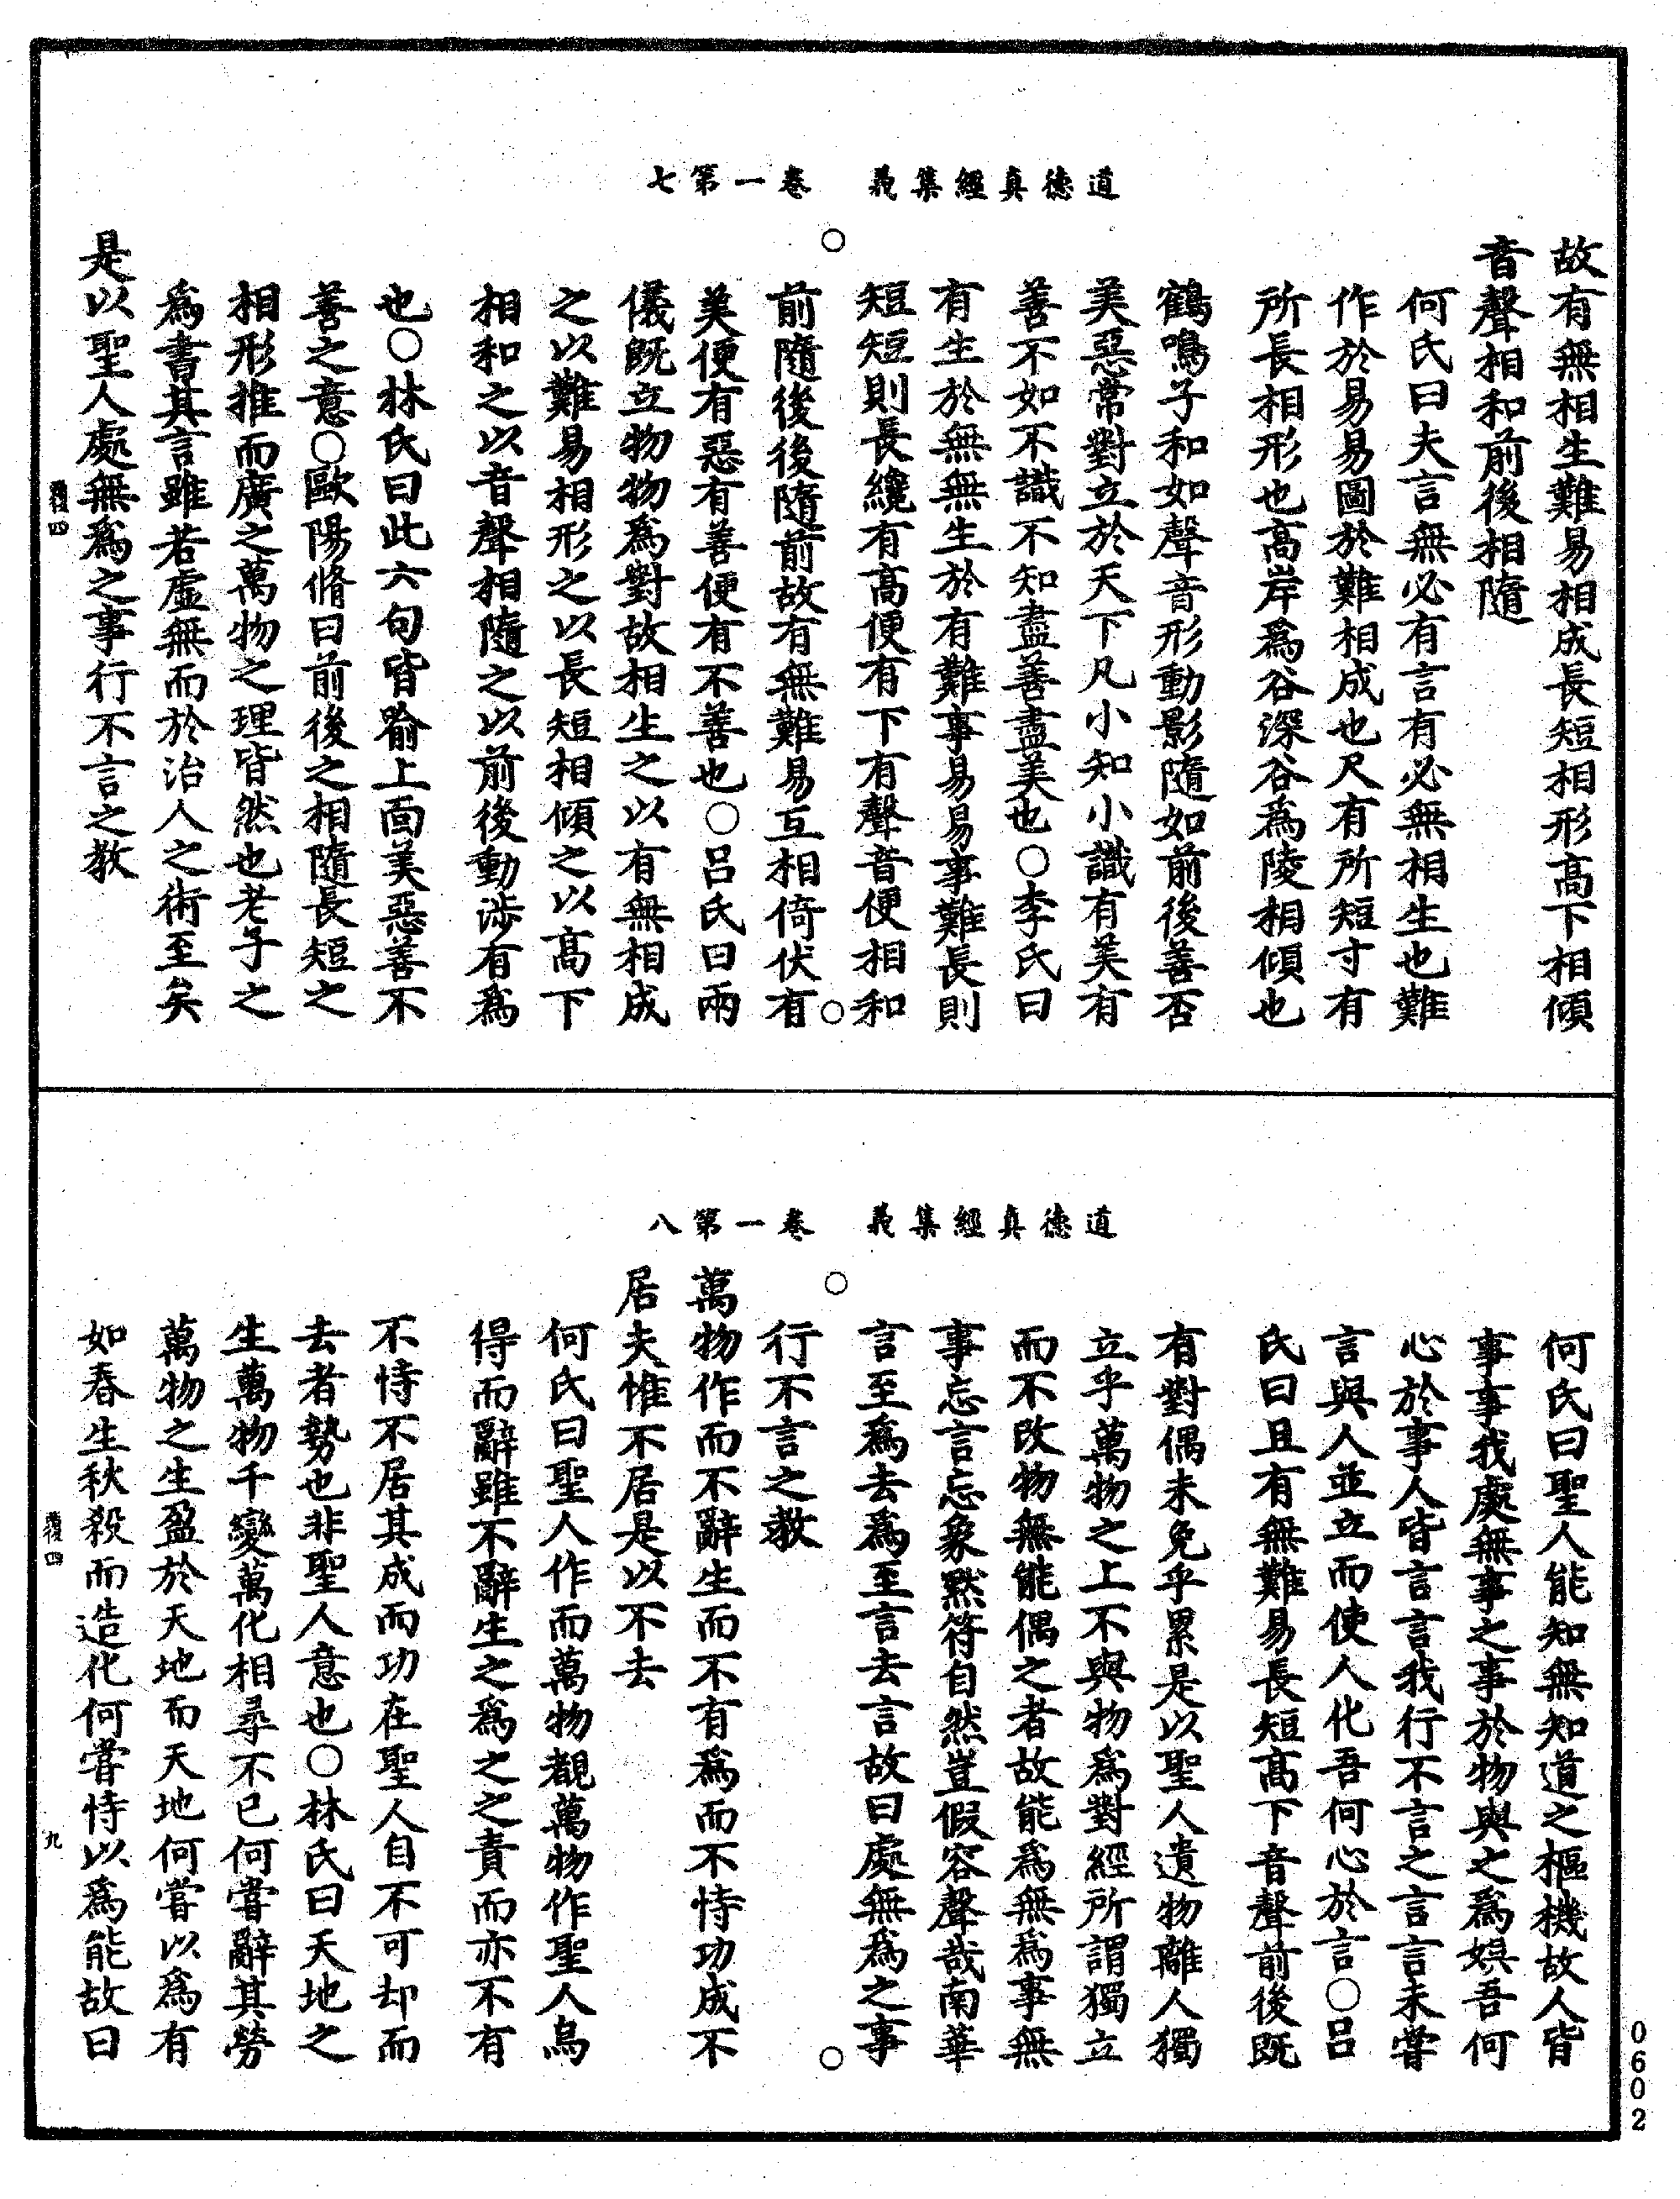 道德真經集義　卷一第七
故有無相生難易相成長短相形高下相傾
音聲相和前後相隨
何氏曰夫言無必有言有必無相生也難
作於易易圖於難相成也尺有所短寸有
所長相形也高岸為谷深谷為陵相傾也
鶴鳴子和如聲音形動影隨如前後善否
美惡常對立於天下凡小知小識有美有
善不如不識不知盡善盡美也○李氏曰
有生於無無生於有難事易易事難長則
短短則長纔有高便有下有聲音便相和
前隨後後隨前故有無難易互相倚伏有
美便有惡有善便有不善也○呂氏曰兩
儀既立物物為對故相生之以有無相成
之以難易相形之以長短相傾之以高下
相和之以音聲相隨之以前後動涉有為
也○林氏曰此六句皆喻上面美惡善不
善之意○歐陽脩曰前後之相隨長短之
相形推而廣之萬物之理皆然也老子之
為書其言雖若虛無而於治人之術至矣
是以聖人處無為之事行不言之教
道德真經集義　卷一第八
何氏曰聖人能知無知道之樞機故人皆
事事我處無事之事於物與之為娛吾何
心於事人皆言言我行不言之言言未嘗
言與人並立而使人化吾何心於言○呂
氏曰且有無難易長短高下音聲前後既
有對偶未免乎累是以聖人遺物離人獨
立乎萬物之上不與物為對經所謂獨立
而不改物無能偶之者故能為無為事無
事忘言忘象默符自然豈假容聲哉南華
言至為去為至言去言故曰處無為之事
行不言之教
萬物作而不辭生而不有為而不恃功成不
居夫惟不居是以不去
何氏曰聖人作而萬物覩萬物作聖人烏
得而辭雖不辭生之為之之責而亦不有
不恃不居其成而功在聖人自不可却而
去者勢也非聖人意也○林氏曰天地之
生萬物千變萬化相尋不已何嘗辭其勞
萬物之生盈於天地而天地何嘗以為有
如春生秋殺而造化何嘗恃以為能故曰
九
0602